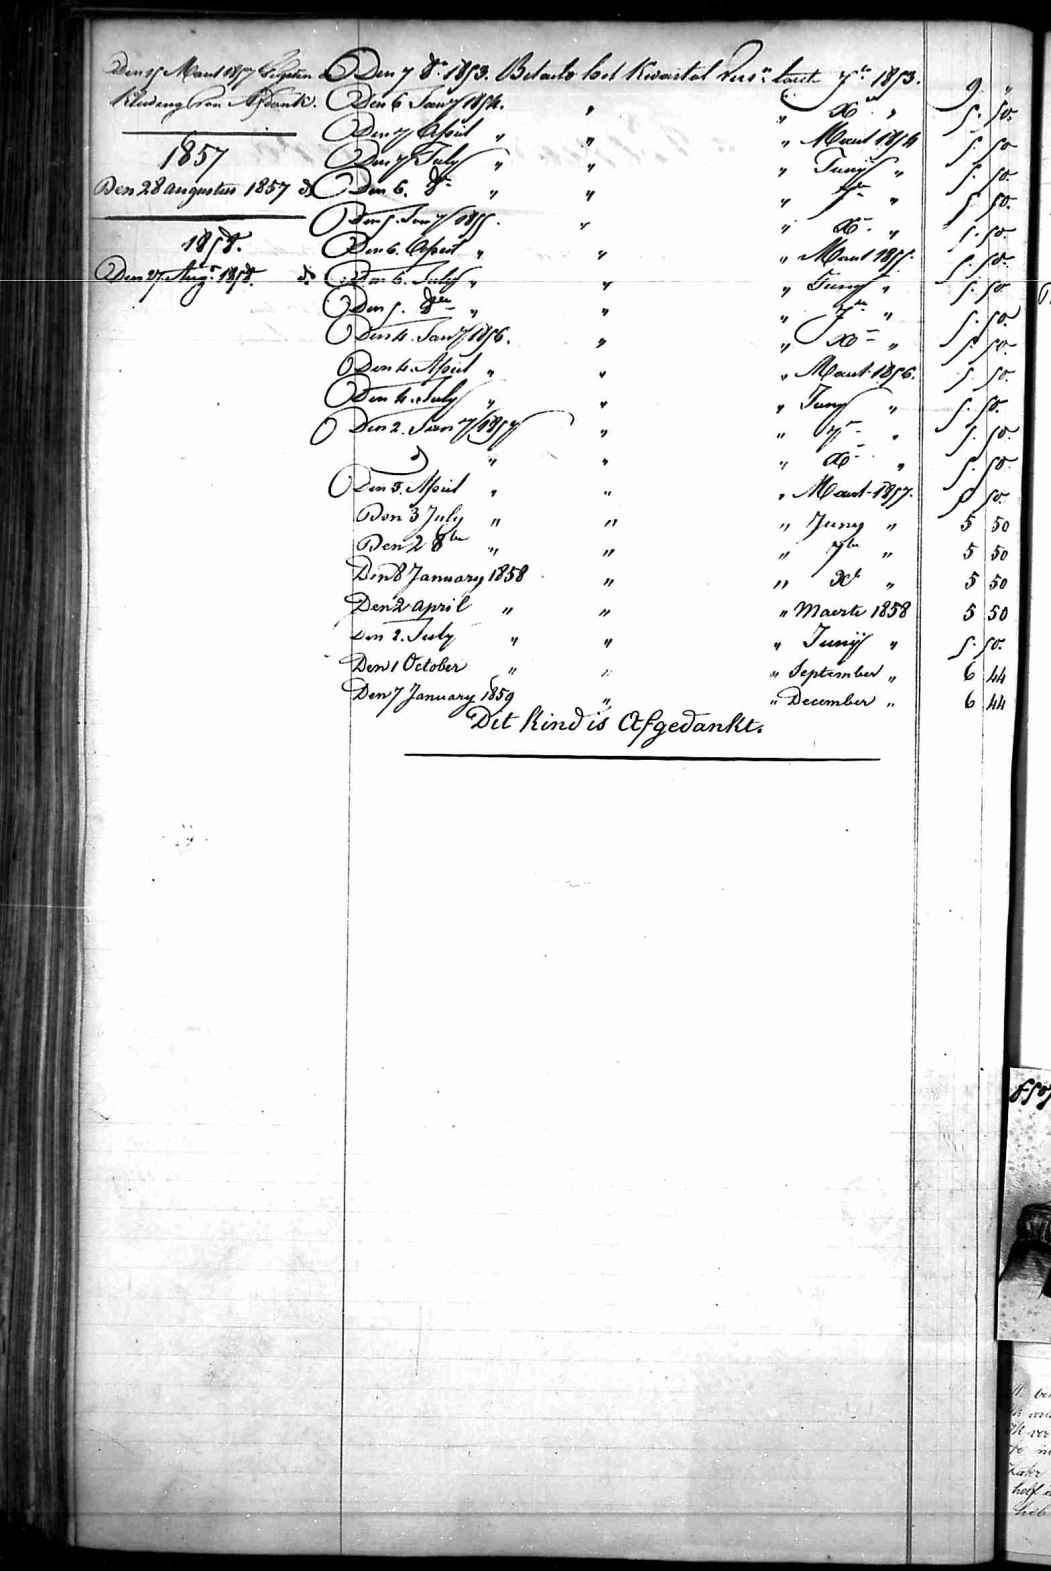 Den 15 Maart 1857
kleeding van Afdank.
1857
Den 28 augustus 1857 do
1858.
Den 27 Augt. 1858. do
Den 7 8r 1853. Betaald het Kwartal 7br 1853. 9 "
Den 6 Jany 1854. " " Xr " 5. 50.
Den 7 April " " " Maart 1854 5. 50
Den 7 July " " " Junij " 5. 50.
Den 6. 8r " " " 7br " 5 50.
Den 5. Jany 1855. " " Xr " 5. 50.
Den 6. April " " " Maart 1855. 5. 50.
Den 6. July " " " Junij " 5. 50
Den 5. 8br " " " 7br " 5. 50.
Den 4. Jany 1856. " " Xr " 5. 50.
Den 4. April " " " Maart 1856. 5. 50.
Den 4. July " " " Juny " 5. 50.
Den 2. Jany 1857 " " 7r " 5. 50.
" " " Xr " 5. 50.
Den 3. April " " " Maart 1857. 5 50.
Den 3 July " " " Juny " 5 50
Den 2 8br " " " 7br " 5 50
Den 8 January 1858 " " Xr " 5 50
Den 2 April " " " Maerte 1858 5 50
Den 2. July " " " Junij " 5. 50.
Den 1 October " " " September " 6 44
Den 7 January 1859 " " December " 6 44
Dit kind is Afgedankt.